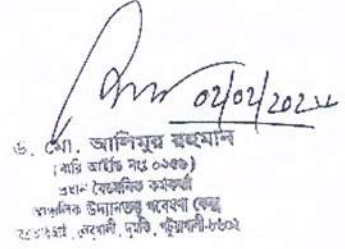 02/02/202
ড. মো. আলিমুর রহমান
(বারি আইডি নংঃ ০২৫৬)
প্রধান বৈজ্ঞানিক কর্মকর্তা
আঞ্চলিক উদ্যানতত্ত্ব গবেষণা কেন্দ্র
লেবুখালী, দুমকি, পটুয়াখালী-৮৬০২